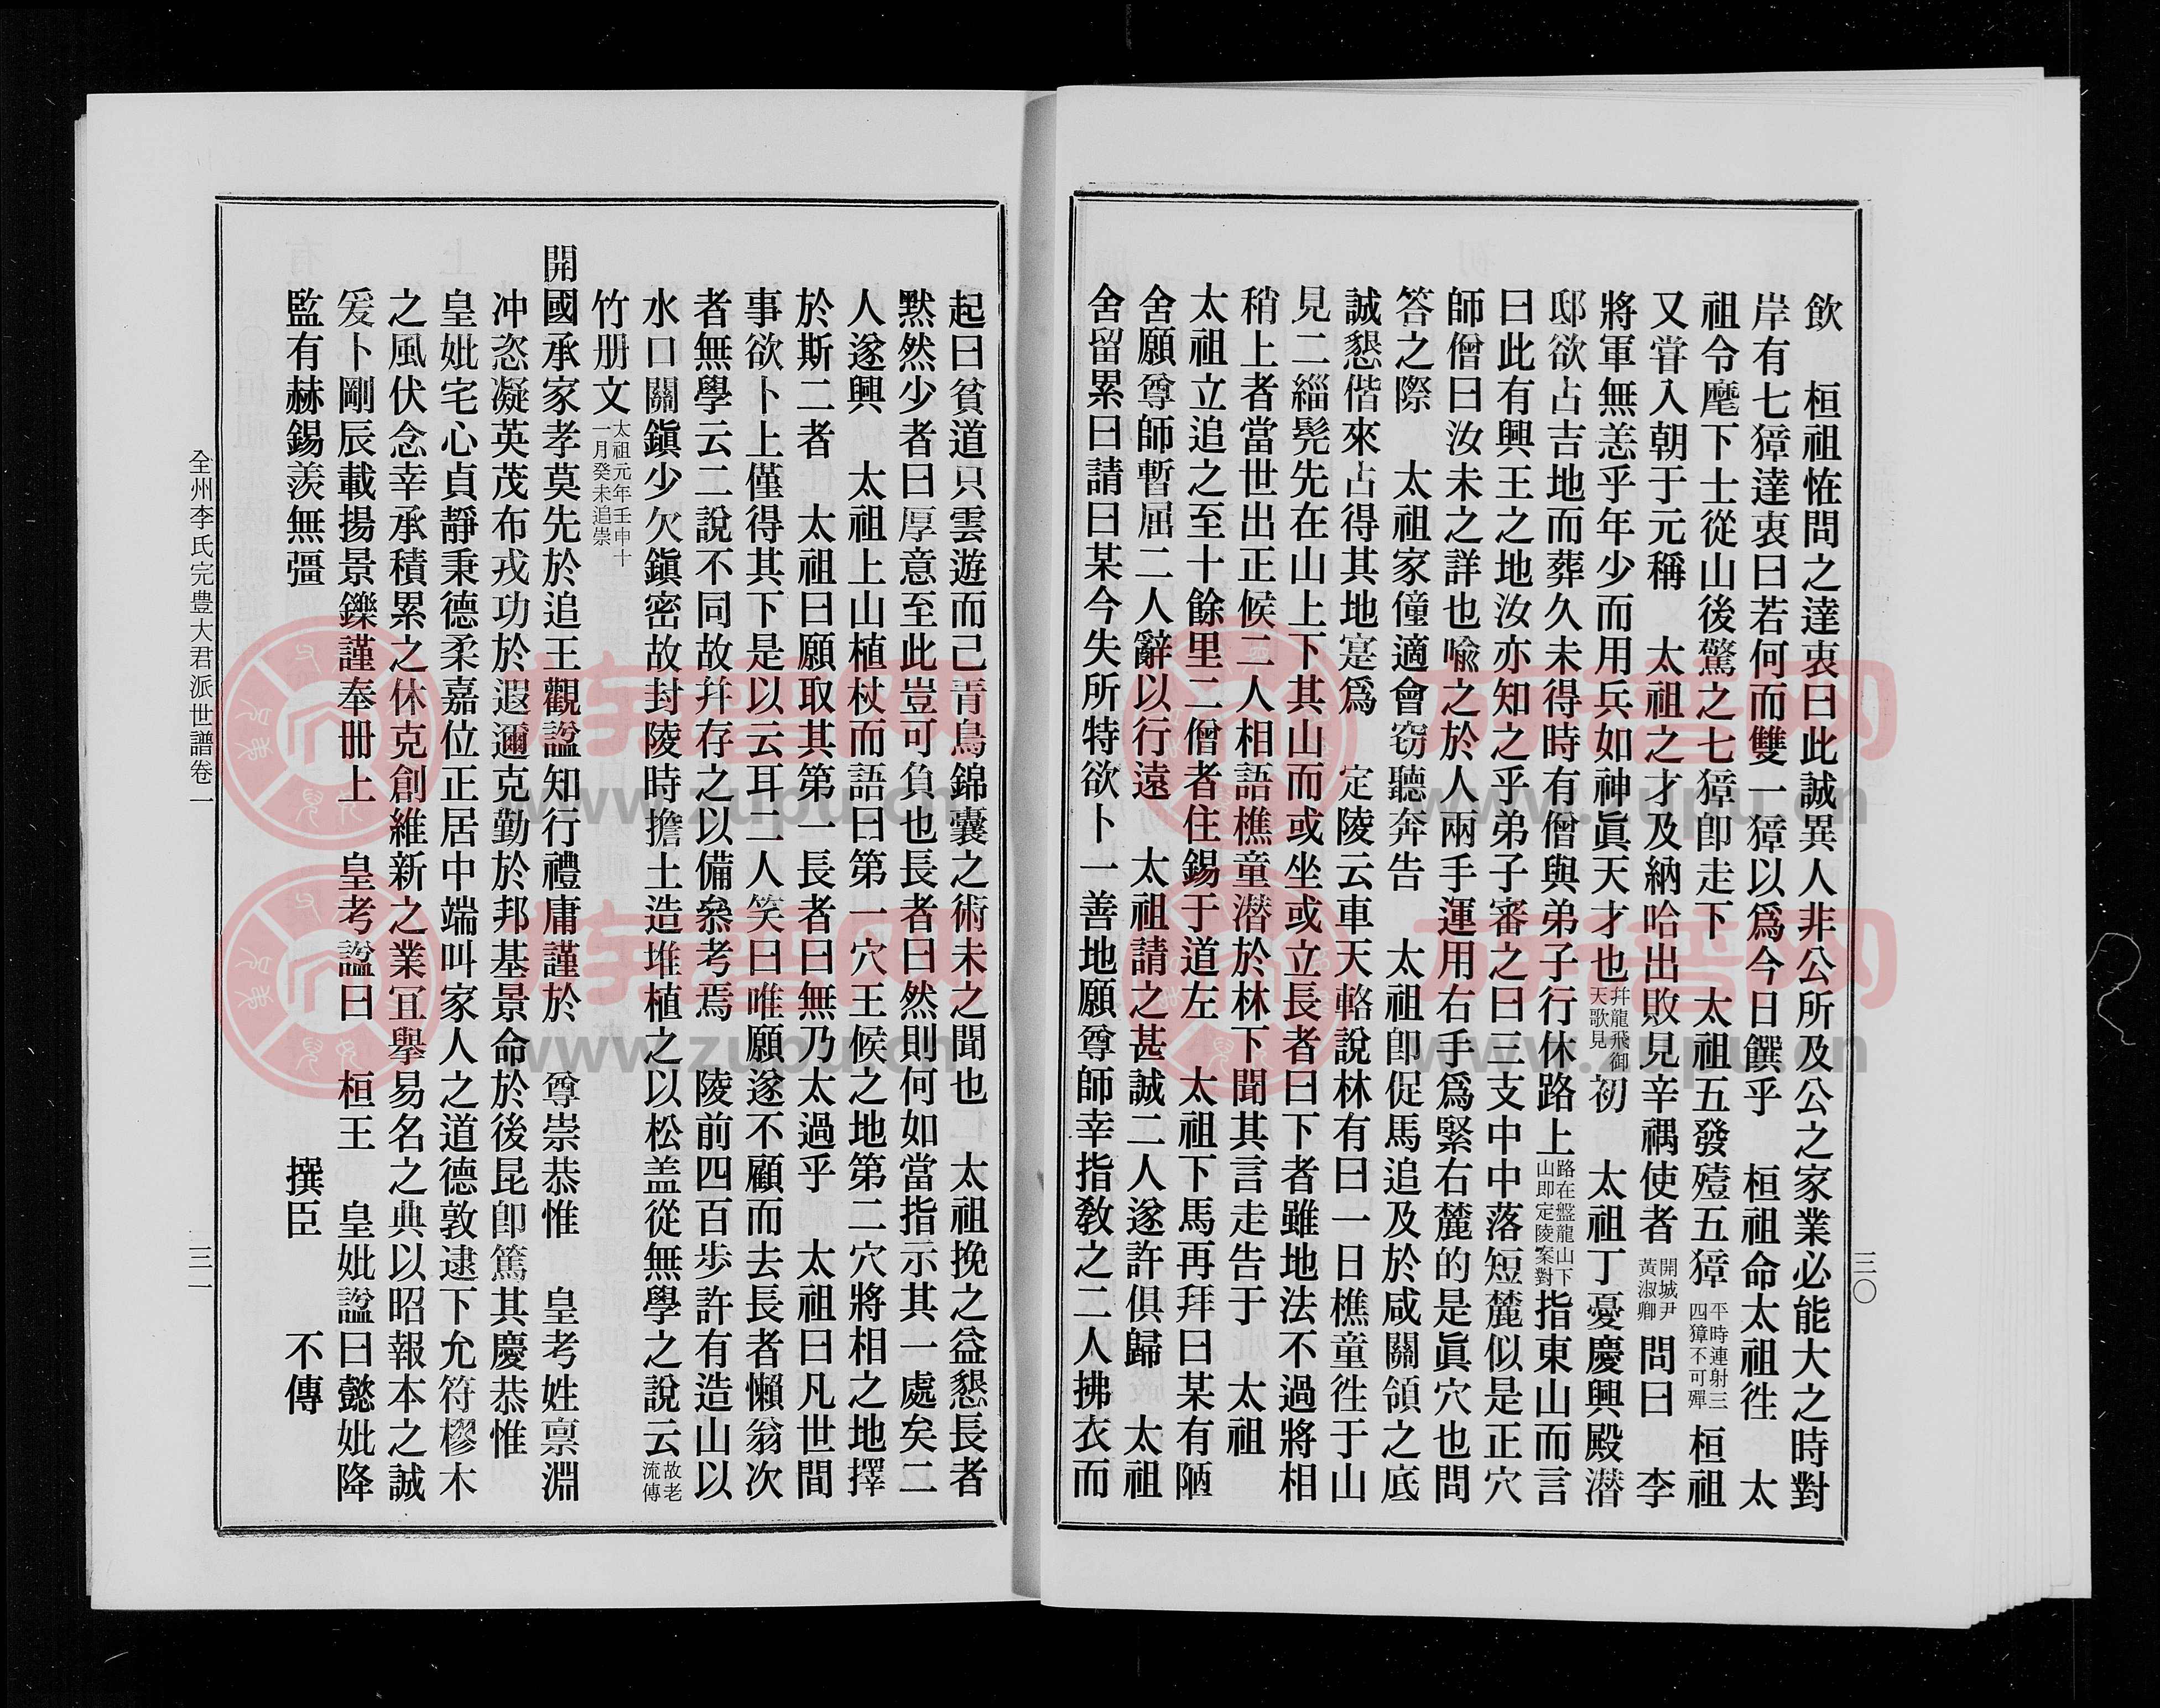 飲　桓祖恠問之達衷曰此誠異人非公所及公之家業必能大之時對
岸有七獐達衷曰若何而雙一獐以爲今日饌乎　桓祖命太祖徃　太
祖令麾下士從山後驚之七獐卽走下　太祖五發殪五獐平時連射三四獐不可殫桓祖
又甞入朝于元稱　太祖之才及納哈出敗見辛禑使者開城尹黃淑卿問曰　李
將軍無恙乎年少而用兵如神眞天才也幷龍飛御天歌見初　太祖丁憂慶興殿潛
邸欲占吉地而葬久未得時有僧與弟子行休路上路在盤龍山下山即定陵案對指東山而言
曰此有興王之地汝亦知之乎弟子審之曰三支中中落短麓似是正穴
師僧曰汝未之詳也喩之於人兩手運用右手爲緊右麓的是眞穴也問
答之際　太祖家僮適會窃聽奔告　太祖卽促馬追及於咸關領之底
誠懇偕來占得其地寔爲　定陵云車天輅說林有曰一日樵童徃于山
見二緇髡先在山上下其山而或坐或立長者曰下者雖地法不過將相
稍上者當世出正候二人相語樵童潛於林下聞其言走告于　太祖
太祖立追之至十餘里二僧者住錫于道左　太祖下馬再拜曰某有陋
舍願尊師暫屈二人辭以行遠　太祖請之甚誠二人遂許俱歸　太祖
舍留累日請曰某今失所特欲卜一善地願尊師幸指敎之二人拂衣而
三〇
起曰貧道只雲遊而已靑鳥錦囊之術未之聞也　太祖挽之益懇長者
默然少者曰厚意至此豈可負也長者曰然則何如當指示其一處矣二
人遂興　太祖上山植杖而語曰第一穴王候之地第二穴將相之地擇
於斯二者　太祖曰願取其第一長者曰無乃太過乎　太祖曰凡世間
事欲卜上僅得其下是以云耳二人笑曰唯願遂不顧而去長者懶翁次
者無學云二說不同故幷存之以備叅考焉　陵前四百步許有造山以
水口關鎭少欠鎭密故封陵時擔土造堆植之以松盖從無學之說云故老流傳
竹册文太祖元年壬申十一月癸未追崇
開國承家孝莫先於追王觀諡知行禮庸謹於　尊崇恭惟　皇考姓禀淵
冲恣凝英茂布戎功於遐邇克勤於邦基景命於後昆卽篤其慶恭惟
皇妣宅心貞靜秉德柔嘉位正居中端叫家人之道德敦逮下允符樛木
之風伏念幸承積累之休克創維新之業冝擧易名之典以昭報本之誠
爰卜剛辰載揚景鑠謹奉冊上　皇考諡曰　桓王　皇妣諡曰懿妣降
監有赫錫羨無彊　撰臣　不傳
全州李氏完豊大君派世譜卷一
三一
族譜网
www.zupu.cn
族譜网
www.zupu.cn
族譜网
www.zupu.cn
族譜网
www.zupu.cn